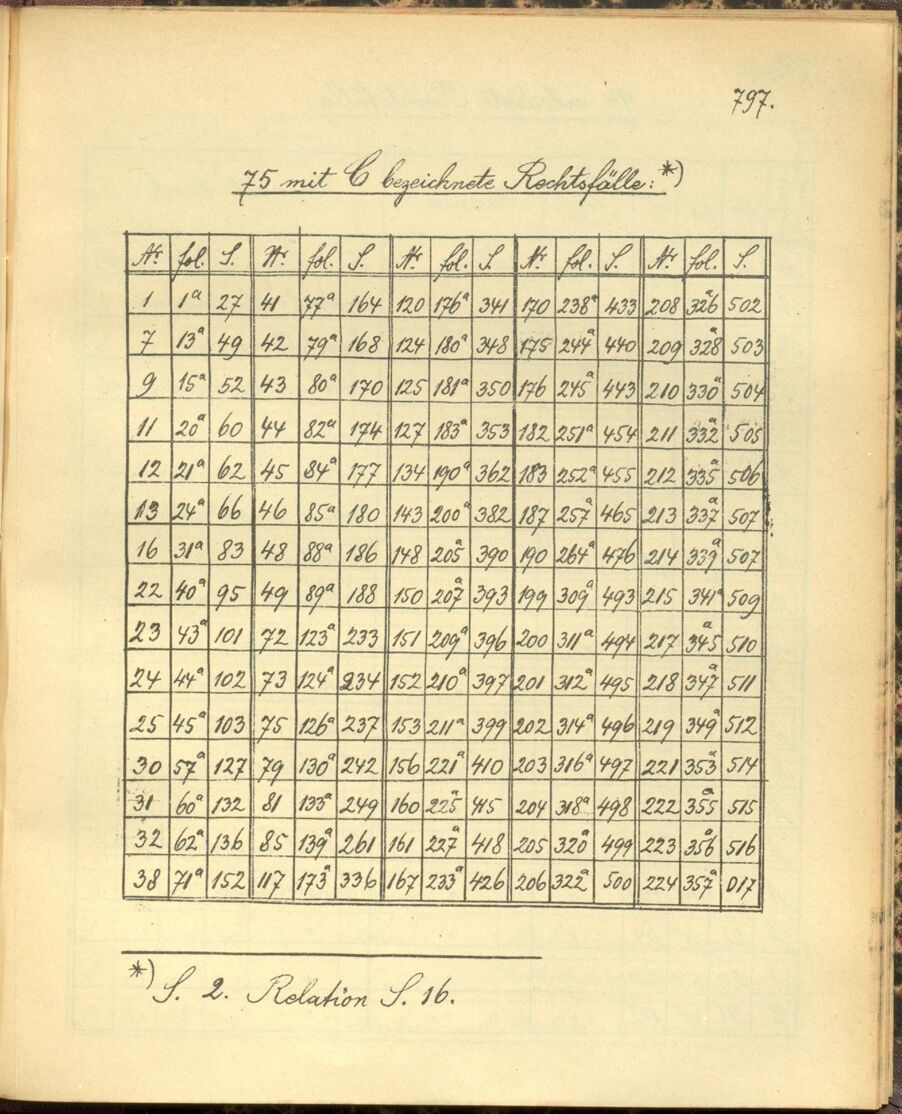 797.
75 mit C bezeichnete Rechtsfälle: *)
Nr. fol. S. Nr. fol. S. Nr. fol. S. Nr. fol. S. Nr. fol. S.
1 1a 27 41 77a 164 120 176a 341 170 238a 433 208 326a 502
7 13a 49 42 79a 168 124 180a 348 175 244a 440 209 328a 503
9 15a 52 43 80a 170 125 181a 350 176 245a 443 210 330a 504
11 20a 60 44 82a 174 127 183a 353 182 251a 454 211 332a 505
12 21a 62 45 84a 177 134 190a 362 183 252a 455 212 335a 506
13 24a 66 46 85a 180 143 200a 382 187 257a 465 213 337a 507
16 31a 83 48 88a 186 148 205a 390 190 264a 476 214 339a 507
22 40a 95 49 89a 188 150 207a 393 199 309a 493 215 341a 509
23 43a 101 72 123a 233 151 209a 396 200 311a 494 217 345a 510
24 44a 102 73 124a 234 152 210a 397 201 312a 495 218 347a 511
25 45a 103 75 126a 237 153 211a 399 202 314a 496 219 349a 512
30 57a 127 79 130a 242 156 221a 410 203 316a 497 221 353a 514
31 60a 132 81 133a 249 160 225a 415 204 318a 498 222 355a 515
32 62a 136 85 139a 261 161 227a 418 205 320a 499 223 356a 516
38 71a 152 117 173a 336 167 233a 426 206 322a 500 224 357a 517
*) S. 2. Relation S. 16.